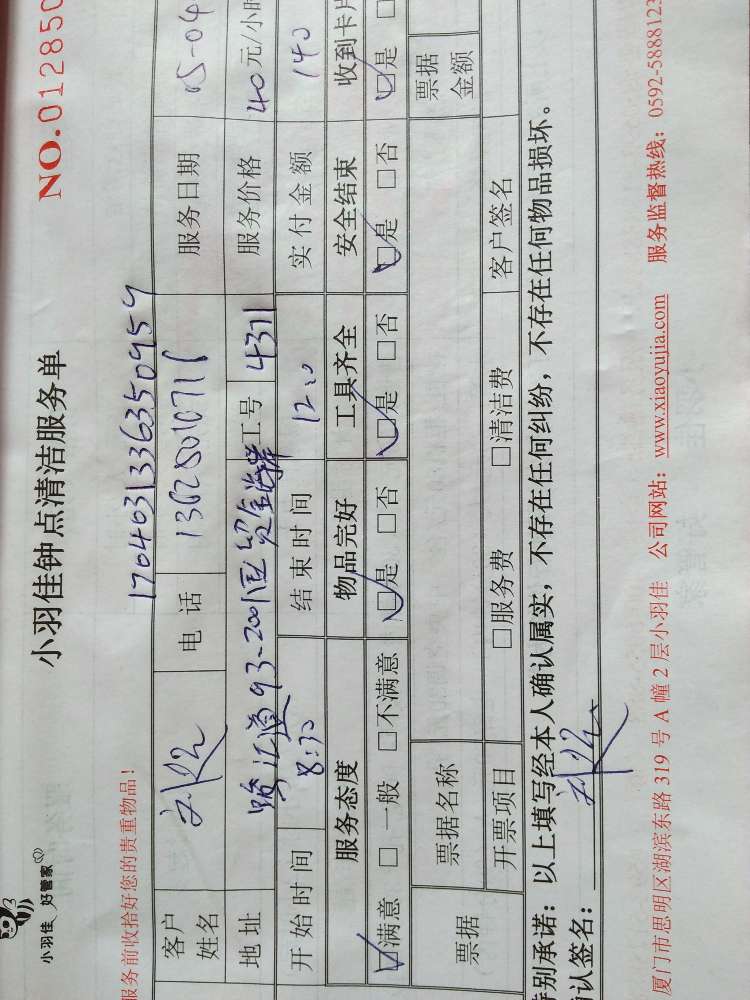 小羽佳 好管家
小羽佳钟点清洁服务单
NO.012850
服务前收拾好您的贵重物品！
客户姓名 电话 服务日期 05-04
地址 93-2001 工号 4311 服务价格 40元/小时
开始时间 8:30 结束时间 12:0 实付金额 140
服务态度 物品完好 工具齐全 安全结束 收到卡片
☑满意 □一般 □不满意 ☑是 □否 ☑是 □否 ☑是 □否 ☑是
票据 票据名称 票据金额
开票项目 □服务费 □清洁费 客户签名
特别承诺：以上填写经本人确认属实，不存在任何纠纷，不存在任何物品损坏。
确认签名：
厦门市思明区湖滨东路 319 号 A 幢 2 层小羽佳 公司网站：www.xiaoyujia.com 服务监督热线：0592-5888123